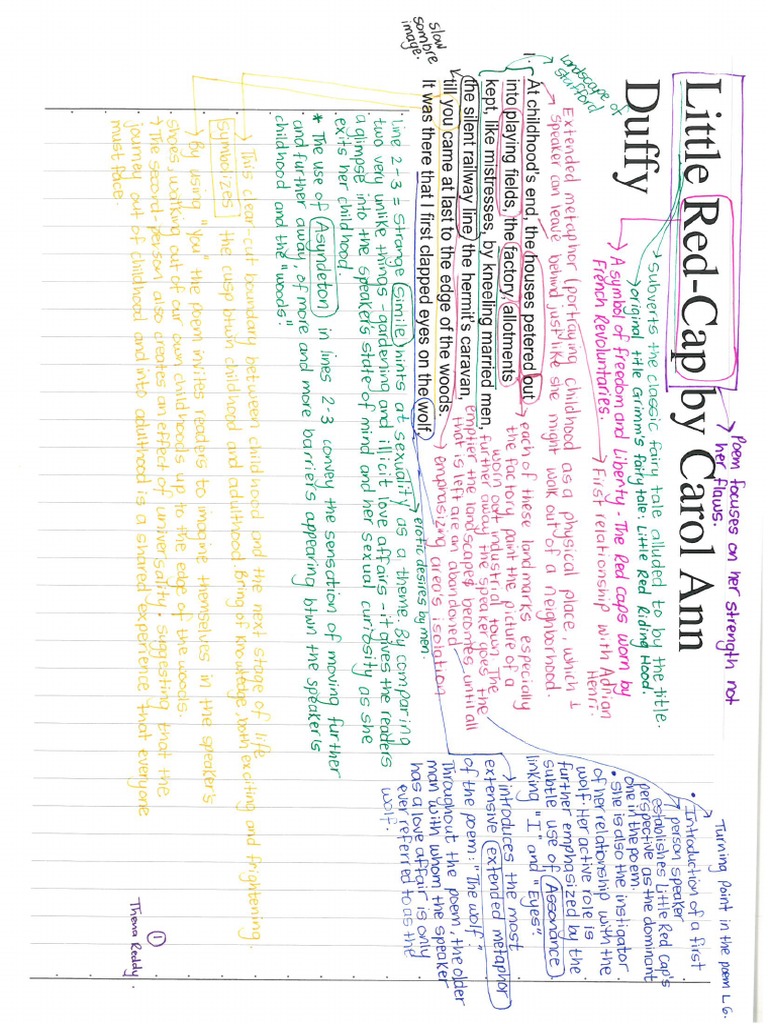 Poem focuses on her strength not
her flaws.
Little Red-Cap by Carol Ann
Duffy
subverts the classic fairy tale alluded to by the title.
original title Grimm's fairy tale: Little Red Riding Hood.
A symbol of freedom and Liberty - The Red caps worn by
French Revoluntaries.
First relationship with Adrian
Henri.
landscape of
Stafford
Extended metaphor (portraying childhood as a physical place, which
speaker can leave behind just like she might walk out of a neighborhood.
1.
At childhood's end, the houses petered out
into playing fields, the factory, allotments
kept, like mistresses, by kneeling married men,
the silent railway line, the hermit's caravan,
till you came at last to the edge of the woods.
It was there that I first clapped eyes on the wolf.
slow
sombre
image.
each of these landmarks especially
the factory paint the picture of a
worn out industrial town. The
further away the speaker goes the
emptier the landscape becomes until all
that is left are an abandoned
emphasizing area's isolation
erotic desires by men.
Line 2-3 = Strange Simile hints at sexuality as a theme. By comparing
two very unlike things - gardening and illicit love affairs - it gives the readers
a glimpse into the speaker's state of mind and her sexual curiosity as she
exits her childhood.
* The use of Asyndeton in lines 2-3 convey the sensation of moving further
and further away, of more and more barriers appearing btwn the speaker's
childhood and the "woods".
This clear-cut boundary between childhood and the next stage of life
symbolizes the cusp btwn childhood and adulthood. Bring of knowledge, both exciting and frightening.
By using "you" the poem invites readers to imagine themselves in the speaker's
shoes, walking out of our own childhoods up to the edge of the woods.
The second-person also creates an effect of universality: suggesting that the
journey out of childhood and into adulthood is a shared experience that everyone
must face.
Turning Point in the poem L6.
• Introduction of a first
person speaker
establishes Little Red Cap's
perspective as the dominant
one in the poem.
• She is also the instigator
of her relationship with the
wolf. Her active role is
further emphasized by the
subtle use of Assonance
linking "I" and "Eyes".
introduces the most
extensive extended metaphor
of the poem: "The wolf".
Throughout the poem, the older
man with whom the speaker
has a love affair is only
ever referred to as the
wolf.
1
Thema Reddy.